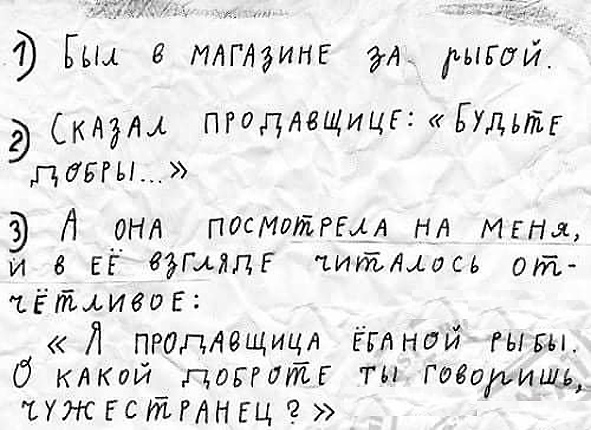 1) Был в магазине за рыбой.
2) Сказал продавщице: «Будьте
добры...»
3) А она посмотрела на меня,
и в её взгляде читалось от-
чётливое:
« Я продавщица ёбаной рыбы.
О какой доброте ты говоришь,
чужестранец?»